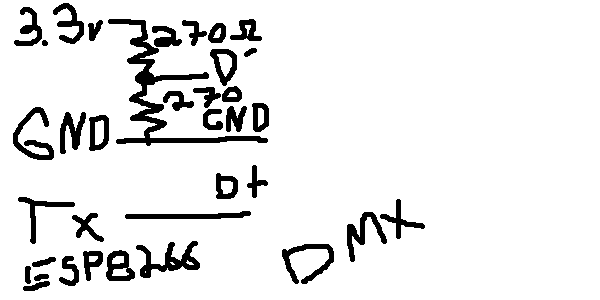 3.3v 270Ω
D-
270
GND GND
D+
Tx
ESP8266 DMX